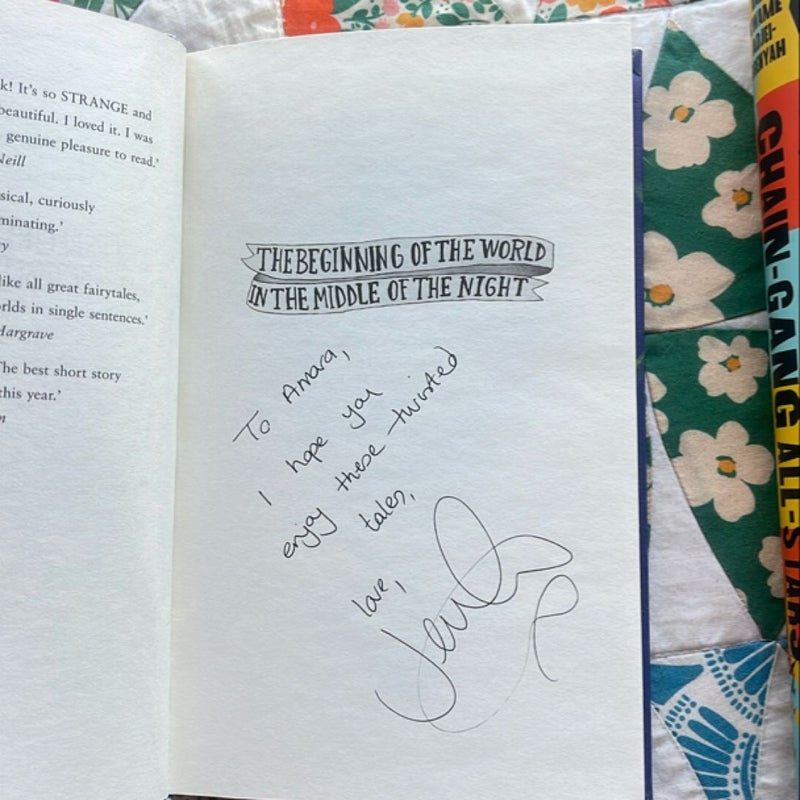 k! It's so STRANGE and
beautiful. I loved it. I was
genuine pleasure to read.'
Neill
sical, curiously
minating.'
y
like all great fairytales,
orlds in single sentences.'
Hargrave
The best short story
this year.'
n
THE BEGINNING OF THE WORLD
IN THE MIDDLE OF THE NIGHT
To Amara,
I hope you
enjoy these twisted
tales,
love,
Jen
CHAIN-GANG ALL-STARS